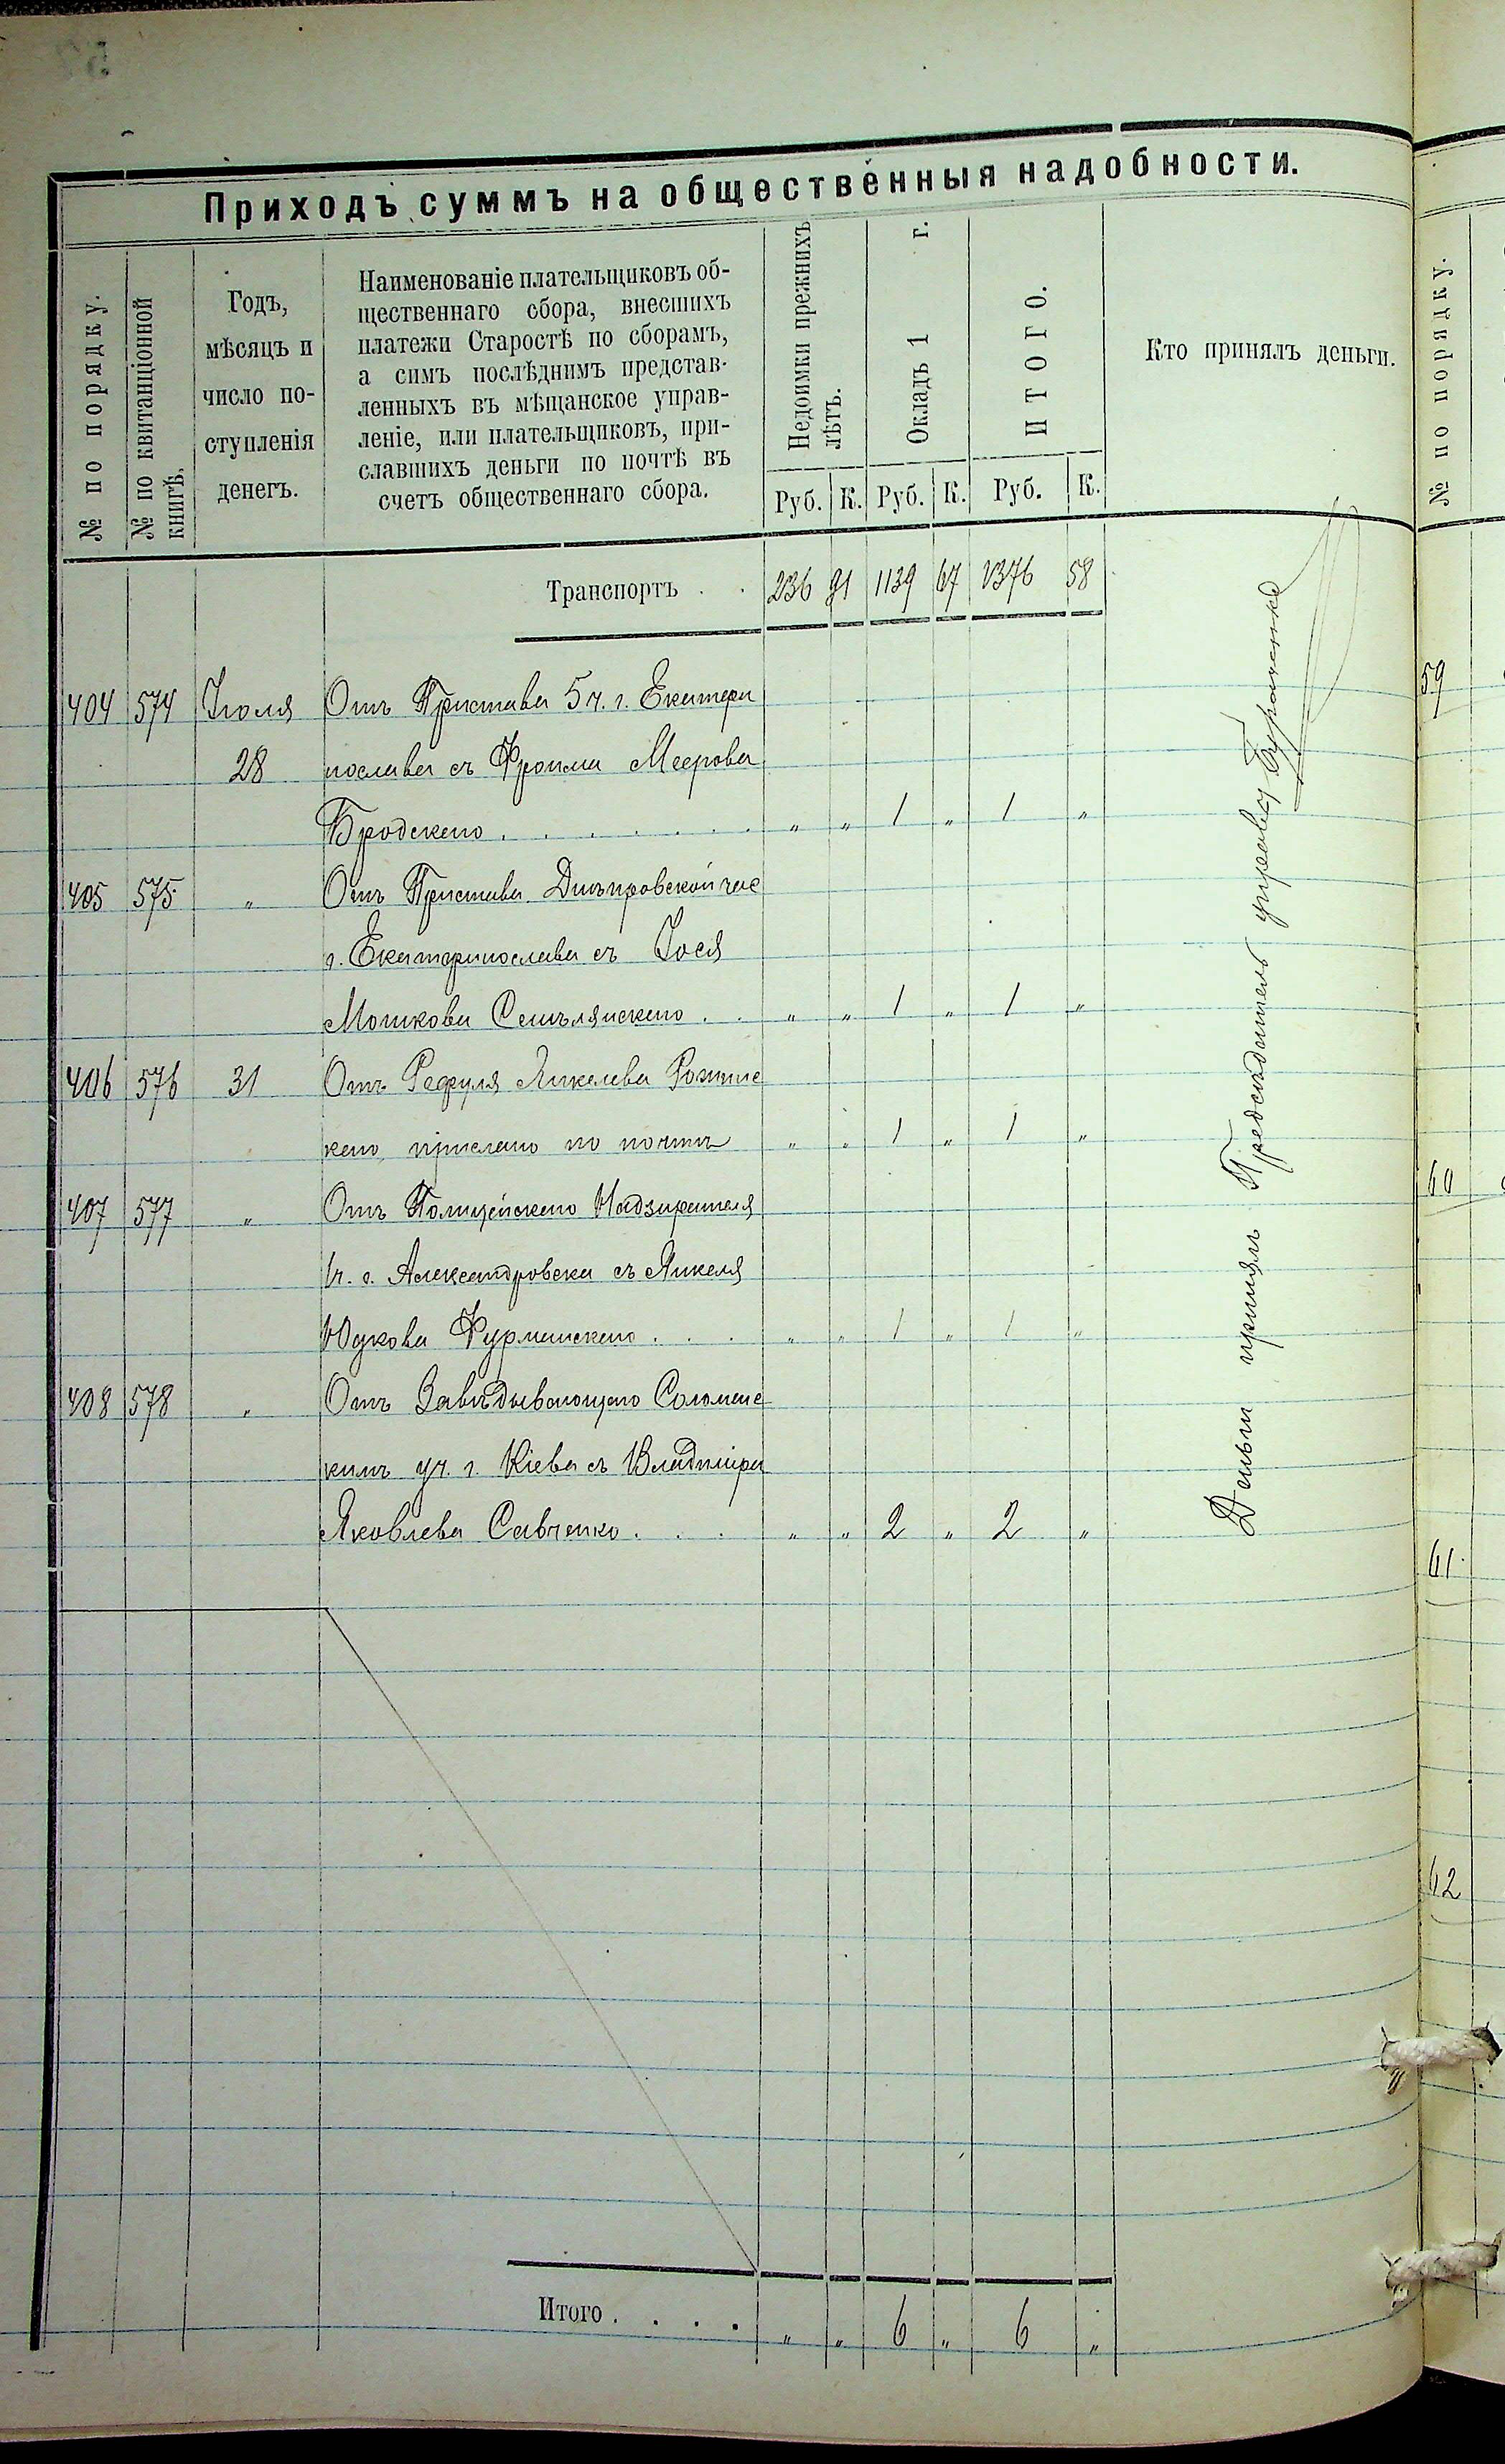 Приходъ суммъ на общественныя надобности.
№ по порядку.
№ по квитанціонной книгѣ.
Годъ, мѣсяцъ и число поступленія денегъ.
Наименованіе плательщиковъ об-
щественнаго сбора, внесшихъ
платежи Старостѣ по сборамъ,
а симъ послѣднимъ представ-
ленныхъ въ мѣщанское управ-
леніе, или плательщиковъ, при-
славшихъ деньги по почтѣ въ
счетъ общественнаго сбора.
Недоимки прежнихъ лѣтъ.
Окладъ 1 г.
ИТОГО.
Кто принялъ деньги.
Руб. К. Руб. К. Руб. К.
Транспортъ . . 236 91 1139 67 1376 58
404 574 Іюля Отъ Пристава 5 ч. г. Екатери
28 нослава съ Фроима Меерова
Бродскаго . . . . . . . „ „ 1 „ 1 „
405 575 „ Отъ Пристава Днѣпровской час
г. Екатеринослава съ Іося
Мошкова . . „ „ 1 „ 1 „
406 576 31 Отъ Янкелева
каго прислано по почтѣ „ „ 1 „ 1 „
407 577 „ Отъ Полицейскаго Надзирателя
1 ч. г. Александровска съ Янкеля
Юдкова Фурманскаго . . . „ „ 1 „ 1 „
408 578 „ Отъ Завѣдывающаго Соломенс
кимъ уч. г. Кіева съ Владиміра
Яковлева Савченко . . . „ „ 2 „ 2 „
Деньги принялъ Предсѣдатель управы
Итого . . . . „ „ 6 „ 6 „
№ по порядку.
59
60
61
62